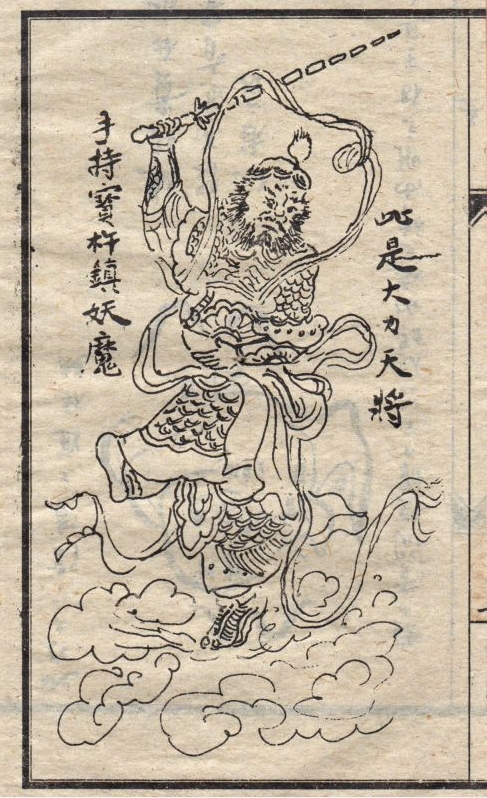 此是大力天將
手持寳杵鎮妖魔